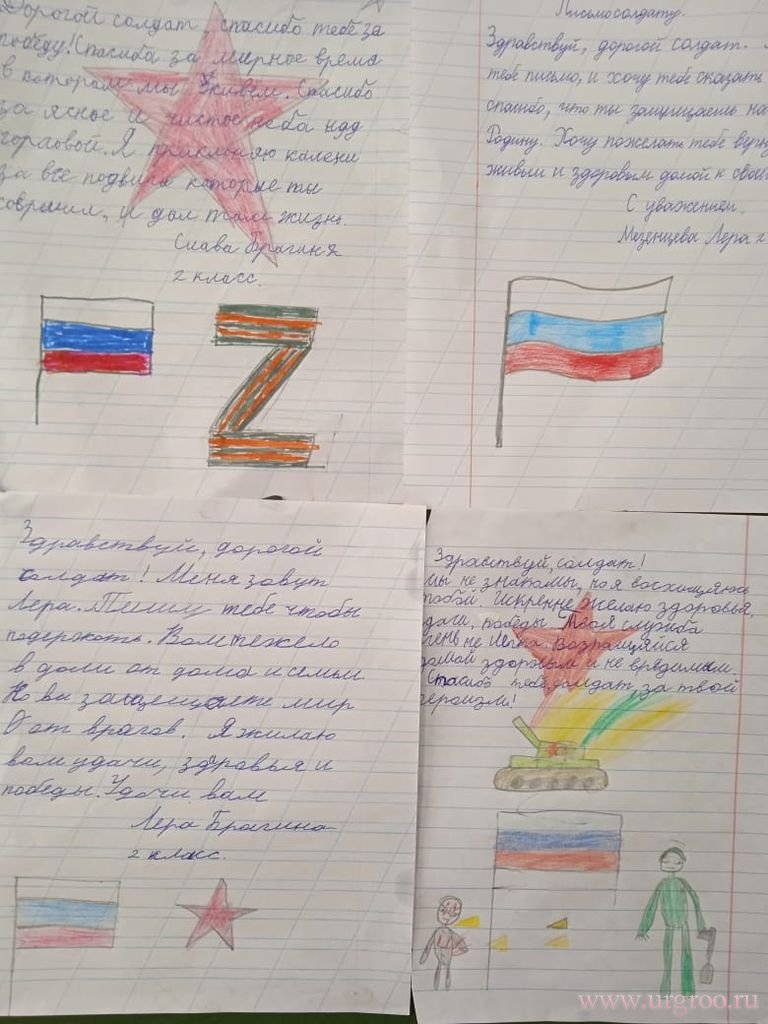 Дорогой солдат, спасибо тебе за
победу! Спасиба за мирное время
в котором мы живём. Спасибо
за ясное и чистое неба над
горловой. Я приклоняю калени
за все подвиги которые ты
совршил, и дал там жизнь.
Слава Брагин я
2 класс.
Письмо солдату.
Здравствуй, дорогой солдат.
тебе письмо, и хочу тебе сказать
спасибо, что ты защищаешь на
Родину. Хочу пожелать тебе верну
живым и здоровым домой к свои
С уважением.
Мезенцева Лера 2
Здравствуй, дорогой
солдат! Меня зовут
Лера. Пишу тебе чтобы
подержать. Вам тежело
в дали от дома и семьи
Но вы защещаете мир
от врагов. Я жилаю
вам удачи, здравья и
победы. Удачи вам
Лера Брагина
2 класс.
Здравствуй, солдат!
Мы не знакомы, но я восхищяюсь
тобой. Искренне желаю здоровья,
дачи, победы. Твоя служба
чень не легка. Возращяйся
домой здоровым и не вредимым.
Спасибо тебе, солдат, за твой
героизм!
Z
www.urgroo.ru